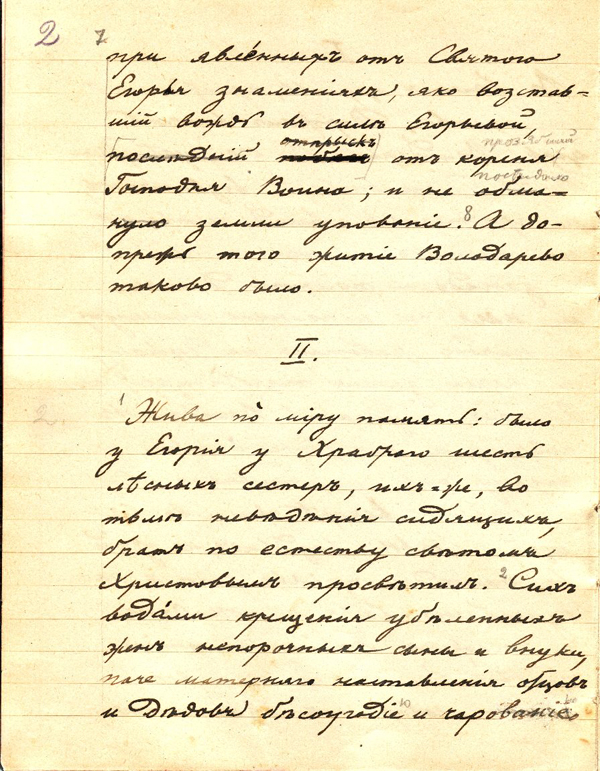 2 7
при явленныхъ отъ Святого
Егорья знаменіяхъ, яко возстав-
шій вождь въ силѣ Егорьевой,
прозябшій
отпрыскъ
послѣдній отъ кореня
послѣдню
Господня Воина; и не обма-
нуло земли упованіе. 8 А до-
прежь того житіе Володарево
таково было.
II.
2.
1 Жива по міру память: было
у Егорія у Храбраго шесть
лѣсныхъ сестеръ, ихъ-же, во
тьмѣ невѣдѣнія сидящихъ,
братъ по естеству свѣтомъ
Христовымъ просвѣтилъ. 2 Сихъ
водáми крещенія убѣленныхъ
женъ непорочныхъ сыны и внуки,
паче матерняго наставленія отцовъ
и дѣдовъ бѣсоугодіе и чарованіе